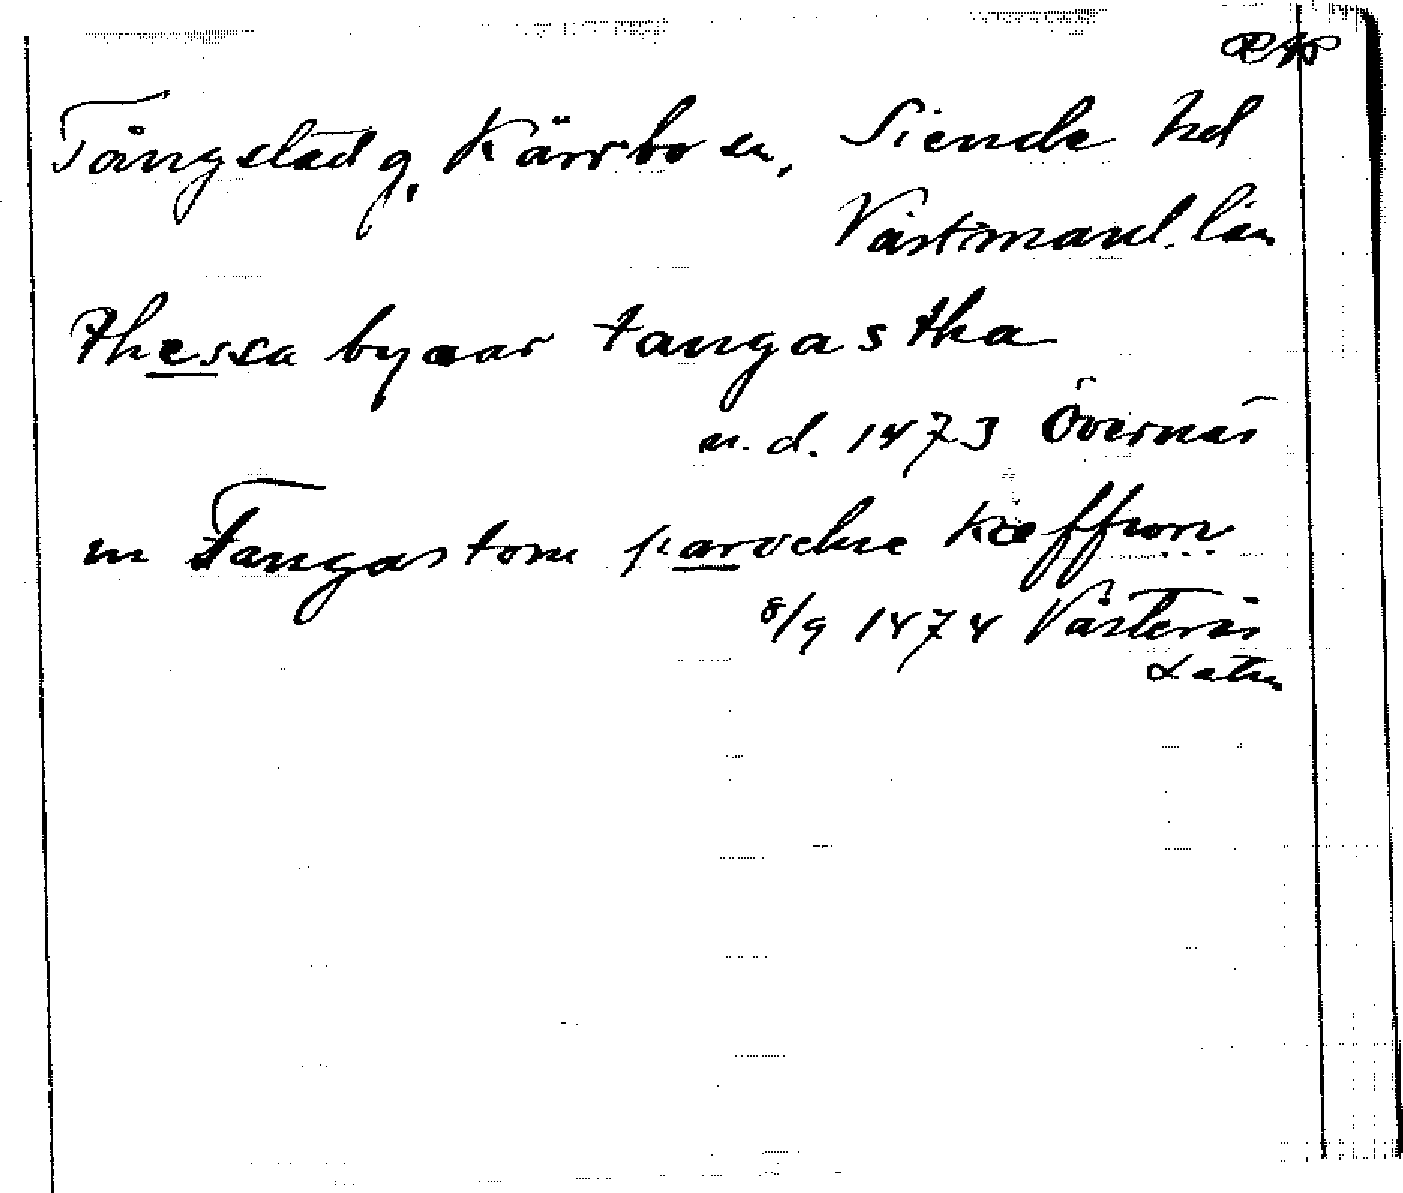 Tångstad g, Kärrbo sn, Siende hd
Västmanl. län
thessa byaar tangastha
u. d. 1473 Övernäs
in Tangastom parochie kæffwom
8/9 1474 Västerås
Latin